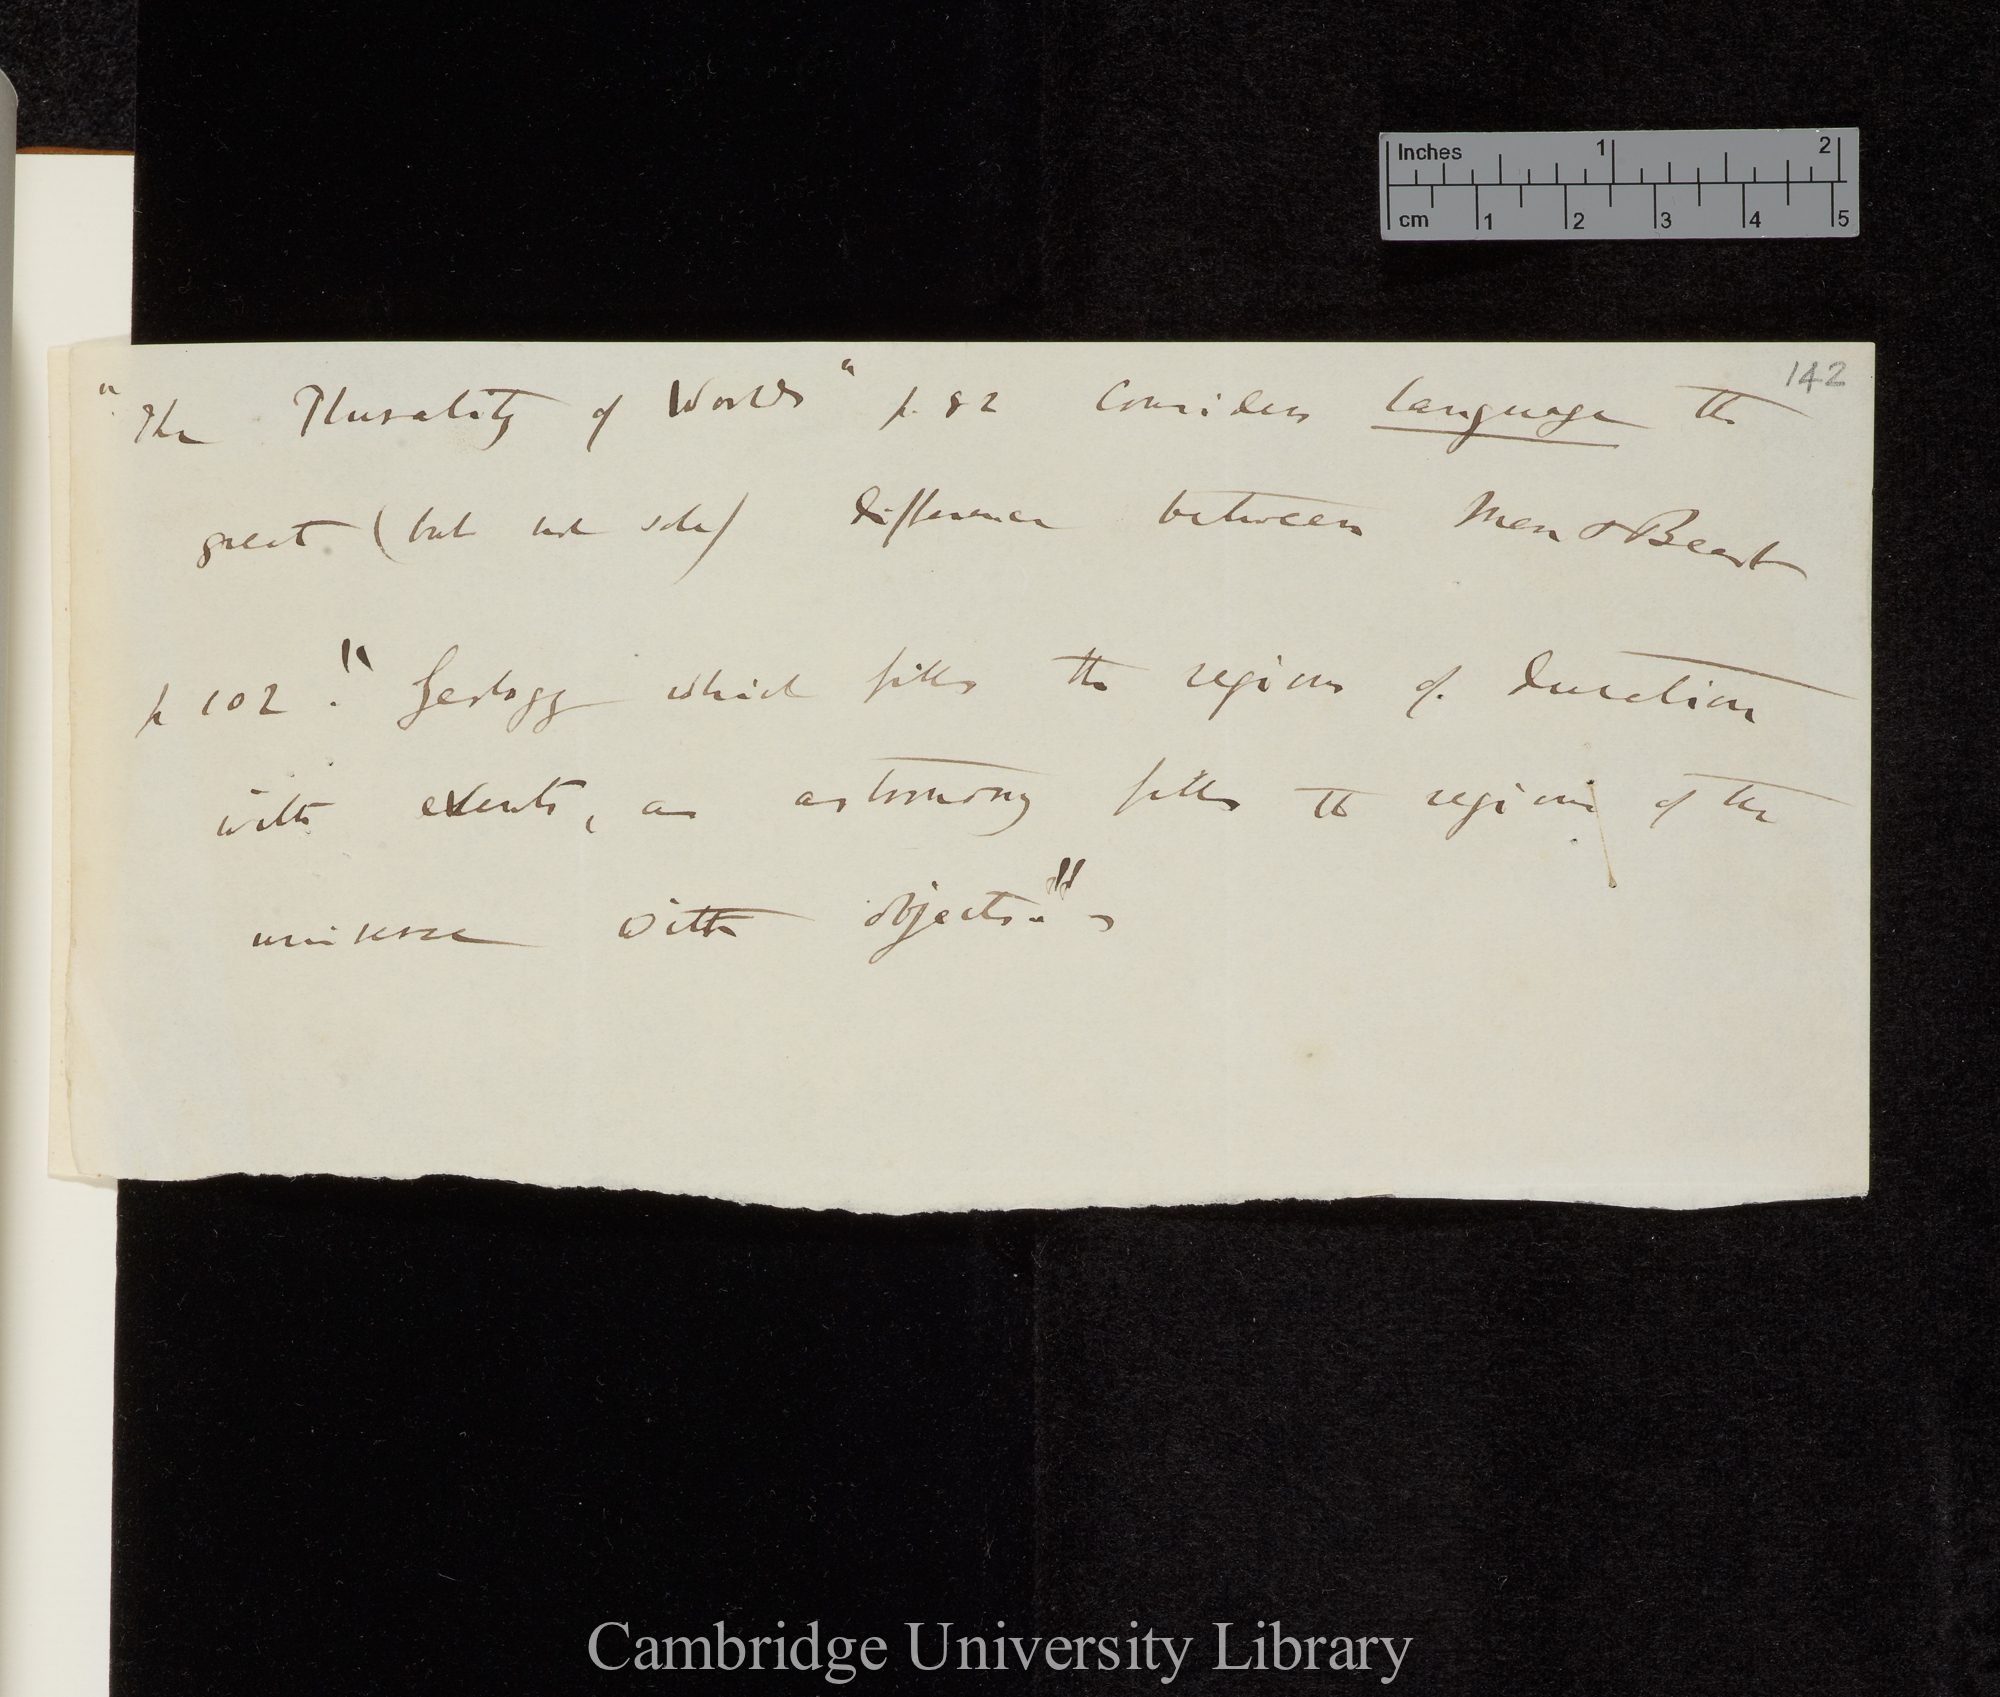 142
"The Plurality of Worlds" p. 82 considers language the
great (but not sole) difference between Men & Beast
p 102. "Geology which fills the regions of duration
with events, as astronomy fills the regions of the
universe with objects."
Inches 1 2
cm 1 2 3 4 5
Cambridge University Library